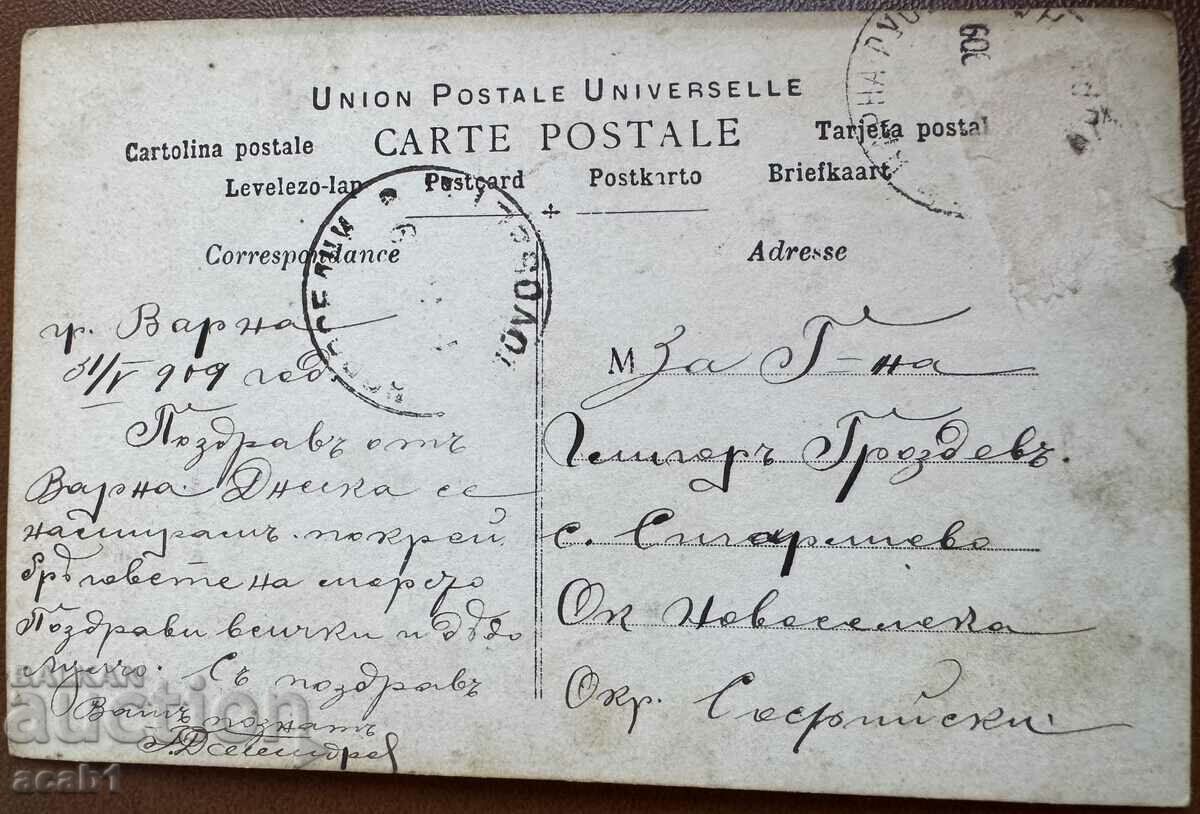 UNION POSTALE UNIVERSELLE
CARTE POSTALE
Cartolina postale
Tarjeta postal
Levelezo-lap
Postcard
Postkarto
Briefkaart
Correspondance
Adresse
гр. Варна
31/V 909 год.
Поздравъ отъ
Варна. Днеска се
намирамъ покрай
бръговете на морето
Поздрави всички и дѣдо
Съ поздравъ
Вашъ познатъ
М За Г-на
Гроздевъ.
с.
Ок Новоселска
Окр. Софийски.
БАЛКАН
auction
acab1